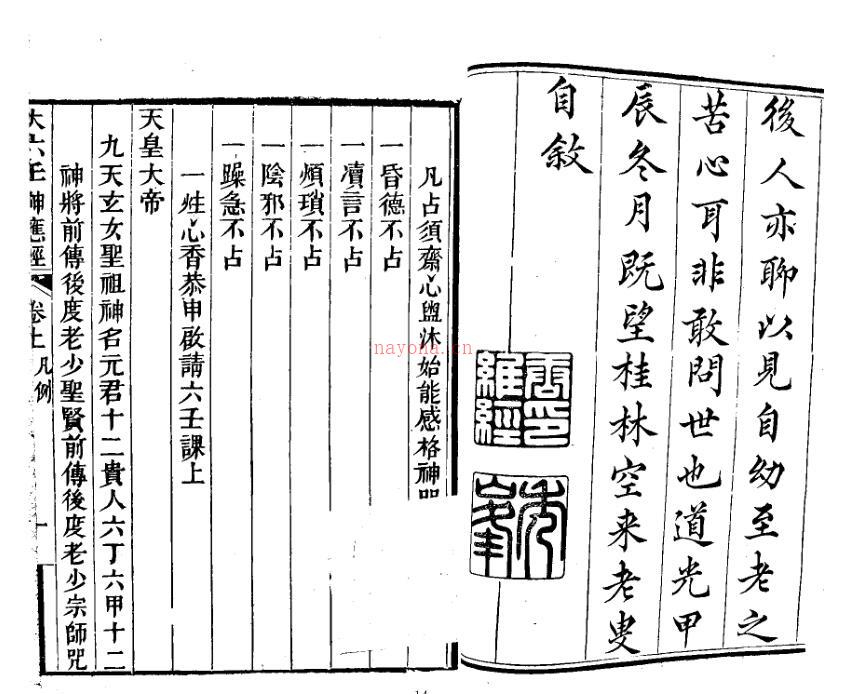 後人亦聊以見自幼至老之
苦心耳非敢問世也道光甲
辰冬月既望桂林空来老叟
自敘
維經
凡占須齋心盥沐始能感格神明
一昏德不占
一凟言不占
一煩瑣不占
一陰邪不占
一躁急不占
一炷心香恭申啟請六壬課上
天皇大帝
九天玄女聖祖神名元君十二貴人六丁六甲十二
神將前傳後度老少聖賢前傳後度老少宗師咒
大六壬神應經 卷上 凡例 一
nayona.cn
14